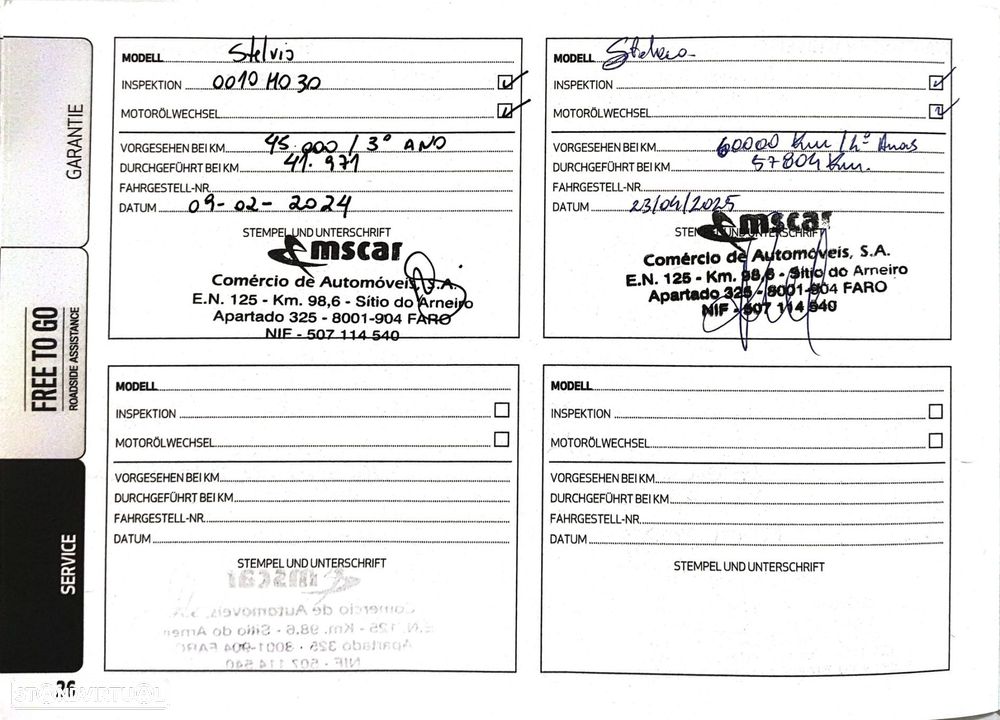 GARANTIE
FREE TO GO
ROADSIDE ASSISTANCE
SERVICE
MODELL Stelvio
INSPEKTION 0010 M030
MOTORÖLWECHSEL
VORGESEHEN BEI KM 45.000 / 3º ANO
DURCHGEFÜHRT BEI KM 41.971
FAHRGESTELL-NR.
DATUM 09-02-2024
STEMPEL UND UNTERSCHRIFT
mscar
Comércio de Automóveis, S.A.
E.N. 125 - Km. 98,6 - Sítio do Arneiro
Apartado 325 - 8001-904 FARO
NIF - 507 114 540
MODELL
INSPEKTION
MOTORÖLWECHSEL
VORGESEHEN BEI KM 60000 Km / 4º Anos
DURCHGEFÜHRT BEI KM 57804 Km.
FAHRGESTELL-NR.
DATUM 23/04/2025
STEMPEL UND UNTERSCHRIFT
mscar
Comércio de Automóveis, S.A.
E.N. 125 - Km. 98,6 - Sítio do Arneiro
Apartado 325 - 8001-904 FARO
NIF - 507 114 540
MODELL
INSPEKTION
MOTORÖLWECHSEL
VORGESEHEN BEI KM
DURCHGEFÜHRT BEI KM
FAHRGESTELL-NR.
DATUM
STEMPEL UND UNTERSCHRIFT
mscar
Comércio de Automóveis, S.A.
E.N. 125 - Km. 98,6 - Sítio do Arnei
Apartado 325 - 8001-904 FARO
NIF - 507 114 540
MODELL
INSPEKTION
MOTORÖLWECHSEL
VORGESEHEN BEI KM
DURCHGEFÜHRT BEI KM
FAHRGESTELL-NR.
DATUM
STEMPEL UND UNTERSCHRIFT
26
STANDVIRTUAL